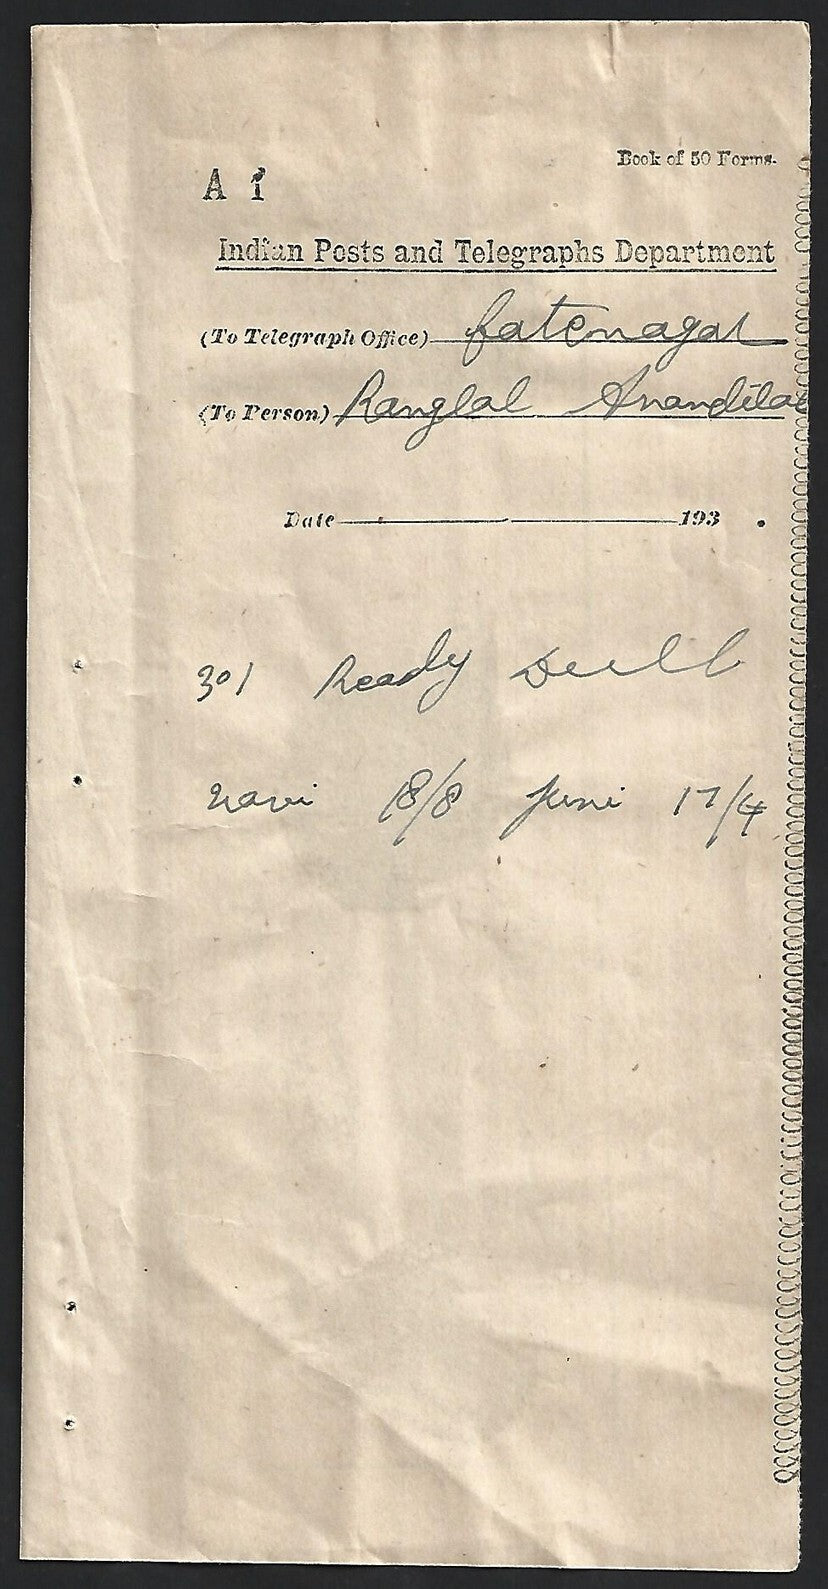 Book of 50 Forms.
A 1
Indian Posts and Telegraphs Department
(To Telegraph Office) fatenagar
(To Person) Ranglal Anandilal
Date 193 .
301 Ready Dull
navi 18/8 juni 17/4